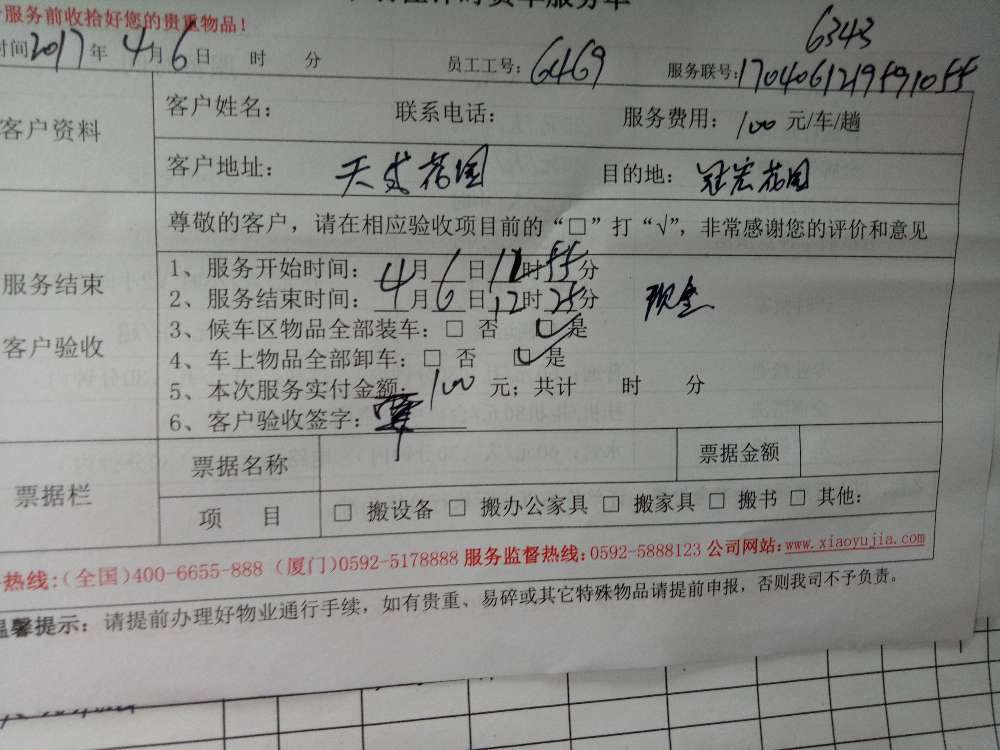 服务前收拾好您的贵重物品！
6343
时间2017年4月6日 时 分 员工工号：6469 服务联号：1704061219591055
客户资料
客户姓名： 联系电话： 服务费用：100元/车/趟
客户地址：天成花园 目的地：冠宏花园
尊敬的客户，请在相应验收项目前的“□”打“√”，非常感谢您的评价和意见
服务结束
客户验收
1、服务开始时间：4月6日11时55分
2、服务结束时间：4月6日12时25分 现金
3、候车区物品全部装车：□ 否 ☑ 是
4、车上物品全部卸车：□ 否 ☑ 是
5、本次服务实付金额：100元；共计 时 分
6、客户验收签字：
票据栏
票据名称 票据金额
项 目 □ 搬设备 □ 搬办公家具 □ 搬家具 □ 搬书 □ 其他：
热线：（全国）400-6655-888（厦门）0592-5178888 服务监督热线：0592-5888123 公司网站：www.xiaoyujia.com
温馨提示：请提前办理好物业通行手续，如有贵重、易碎或其它特殊物品请提前申报，否则我司不予负责。